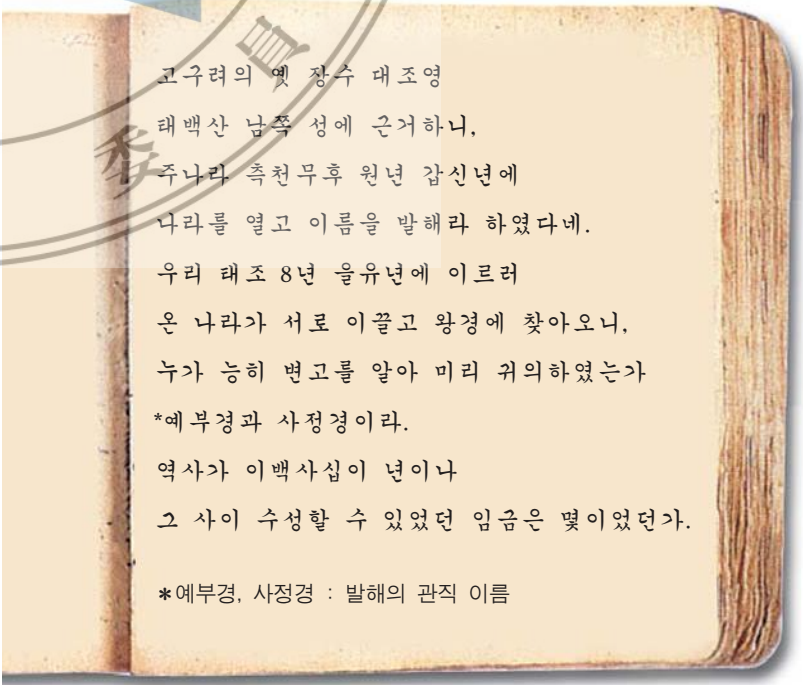 고구려의 옛 장수 대조영
태백산 남쪽 성에 근거하니,
주나라 측천무후 원년 갑신년에
나라를 열고 이름을 발해라 하였다네.
우리 태조 8년 을유년에 이르러
온 나라가 서로 이끌고 왕경에 찾아오니,
누가 능히 변고를 알아 미리 귀의하였는가
*예부경과 사정경이라.
역사가 이백사십이 년이나
그 사이 수성할 수 있었던 임금은 몇이었던가.
*예부경, 사정경 : 발해의 관직 이름
委
員